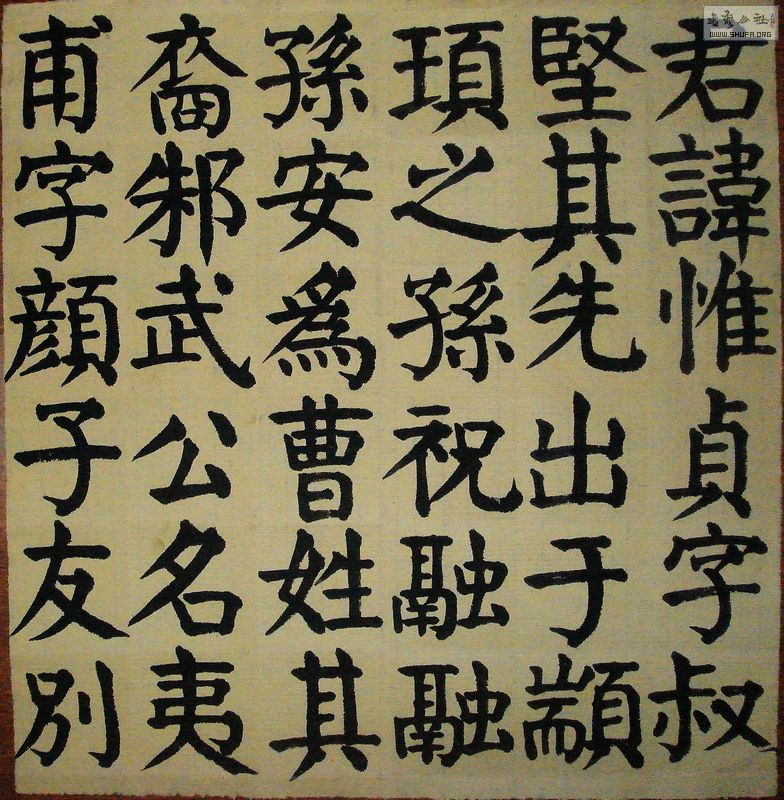 君諱惟貞字叔
堅其先出于顓
頊之孫祝融融
孫安為曹姓其
裔邾武公名夷
甫字顏子友別
书法公社
WWW.SHUFA.ORG